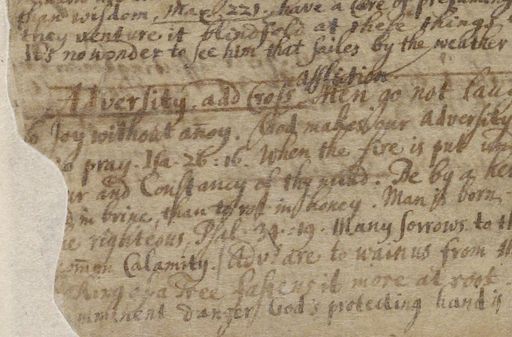 and wisdom, Max. 221. have a care of
they venture it blindfold at these things
It's no wonder to see him that sailes by the weather
Affliction
Adversity. add Cross. Men go not
Joy without añoy. God makes our adversity
pray. Isa. 26: 16. When the fire is put
and Constancy of thy mind. Be by a
in brine, than to rot in honey. Man is born
righteous, Psal. 34. 19. Many sorrows to
Calamity. Adv: are to wain us from
of a Tree fastens it more at root.
imminent danger God's protecting hand is